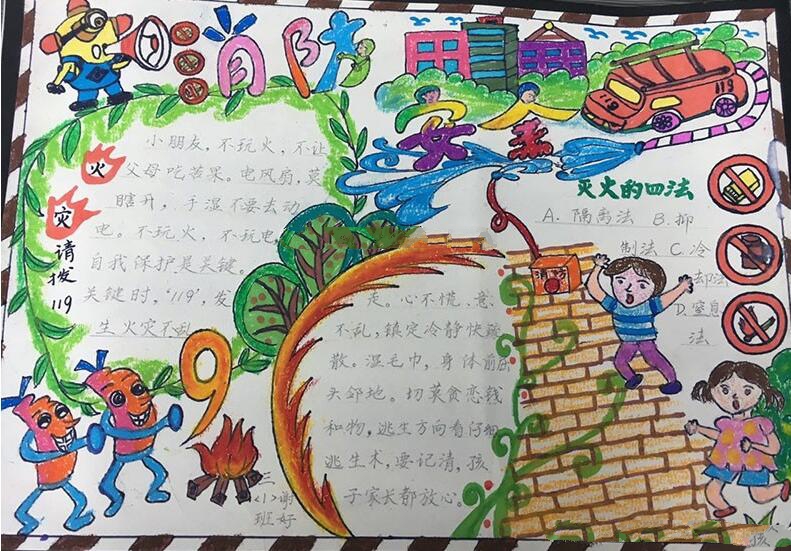 消防
安全
119
火
灾
请
拨
119
小朋友，不玩火，不让
父母吃苦果。电风扇，莫
瞎开，手湿不要去动
电。不玩火，不玩电，
自我保护是关键。
关键时，‘119’，发
生火灾不乱
走。心不慌，意
不乱，镇定冷静快疏
散。湿毛巾，身体前
头邻地。切莫贪恋钱
和物，逃生方向看仔细
逃生术，要记清，孩
子家长都放心。
灭火的四法
A. 隔离法 B. 抑
制法 C. 冷
却法
D. 窒息
法
三
<1>
班